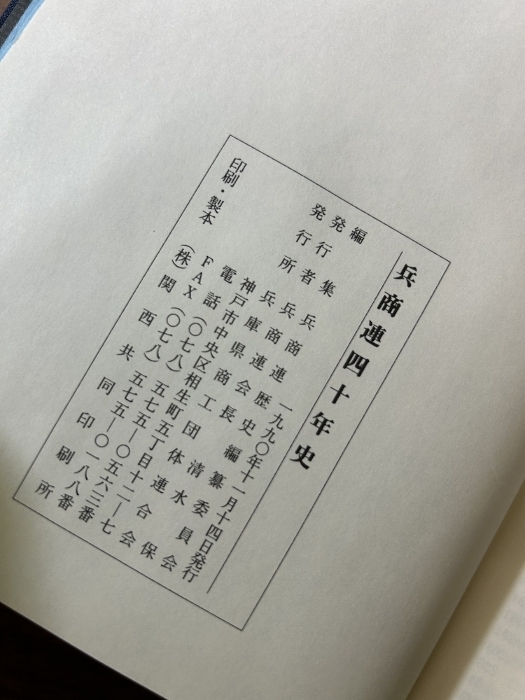 兵商連四十年史
一九九〇年十一月十四日発行
編集 兵商連歴史編纂委員会
発行者 兵商連会長 清水 保
発行所 兵庫県商工団体連合会
神戸市中央区相生町五丁目十二―七
電話(〇七八)五七五―〇五六三番
FAX(〇七八)五七五―〇一八八番
印刷・製本 (株)関西共同印刷所